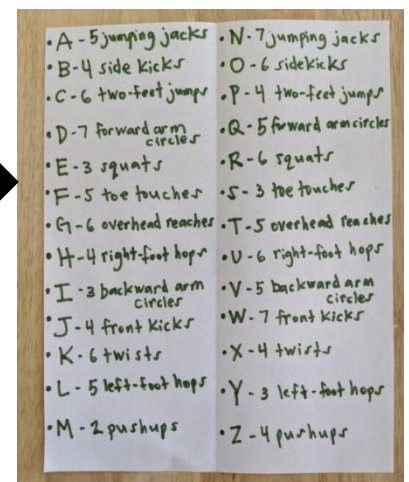 • A - 5 jumping jacks
• B - 4 side kicks
• C - 6 two-feet jumps
• D - 7 forward arm
circles
• E - 3 squats
• F - 5 toe touches
• G - 6 overhead reaches
• H - 4 right-foot hops
• I - 3 backward arm
circles
• J - 4 front kicks
• K - 6 twists
• L - 5 left-foot hops
• M - 2 pushups
• N - 7 jumping jacks
• O - 6 sidekicks
• P - 4 two-feet jumps
• Q - 5 forward arm circles
• R - 6 squats
• S - 3 toe touches
• T - 5 overhead reaches
• U - 6 right-foot hops
• V - 5 backward arm
circles
• W - 7 front kicks
• X - 4 twists
• Y - 3 left-foot hops
• Z - 4 pushups